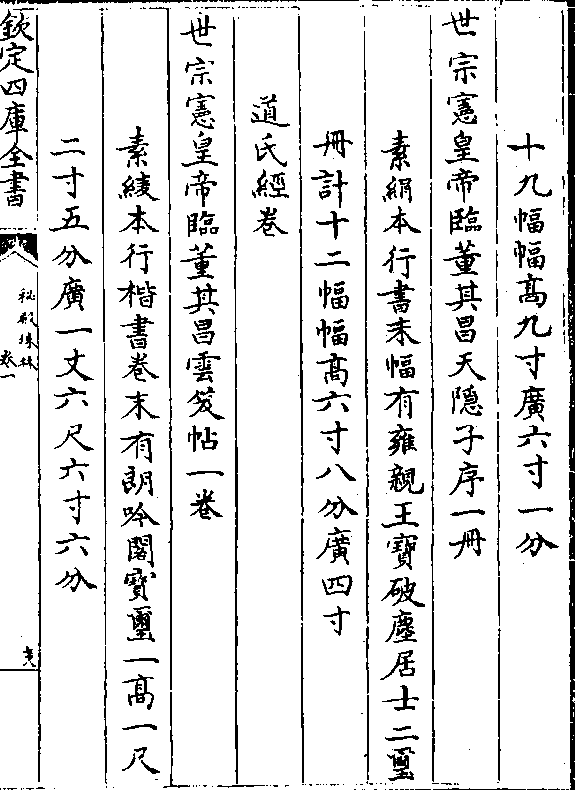 十九幅幅髙九寸廣六寸一分
世宗憲皇帝臨董其昌天隠子序一冊
素絹本行書末幅有雍親王寶破塵居士二璽
冊計十二幅幅髙六寸八分廣四寸
道氏經卷
世宗憲皇帝臨董其昌雲笈帖一卷
素綾本行楷書卷末有朗吟閣寳璽一髙一尺
二寸五分廣一丈六尺六寸六分
欽定四庫全書
秘殿珠林
卷一